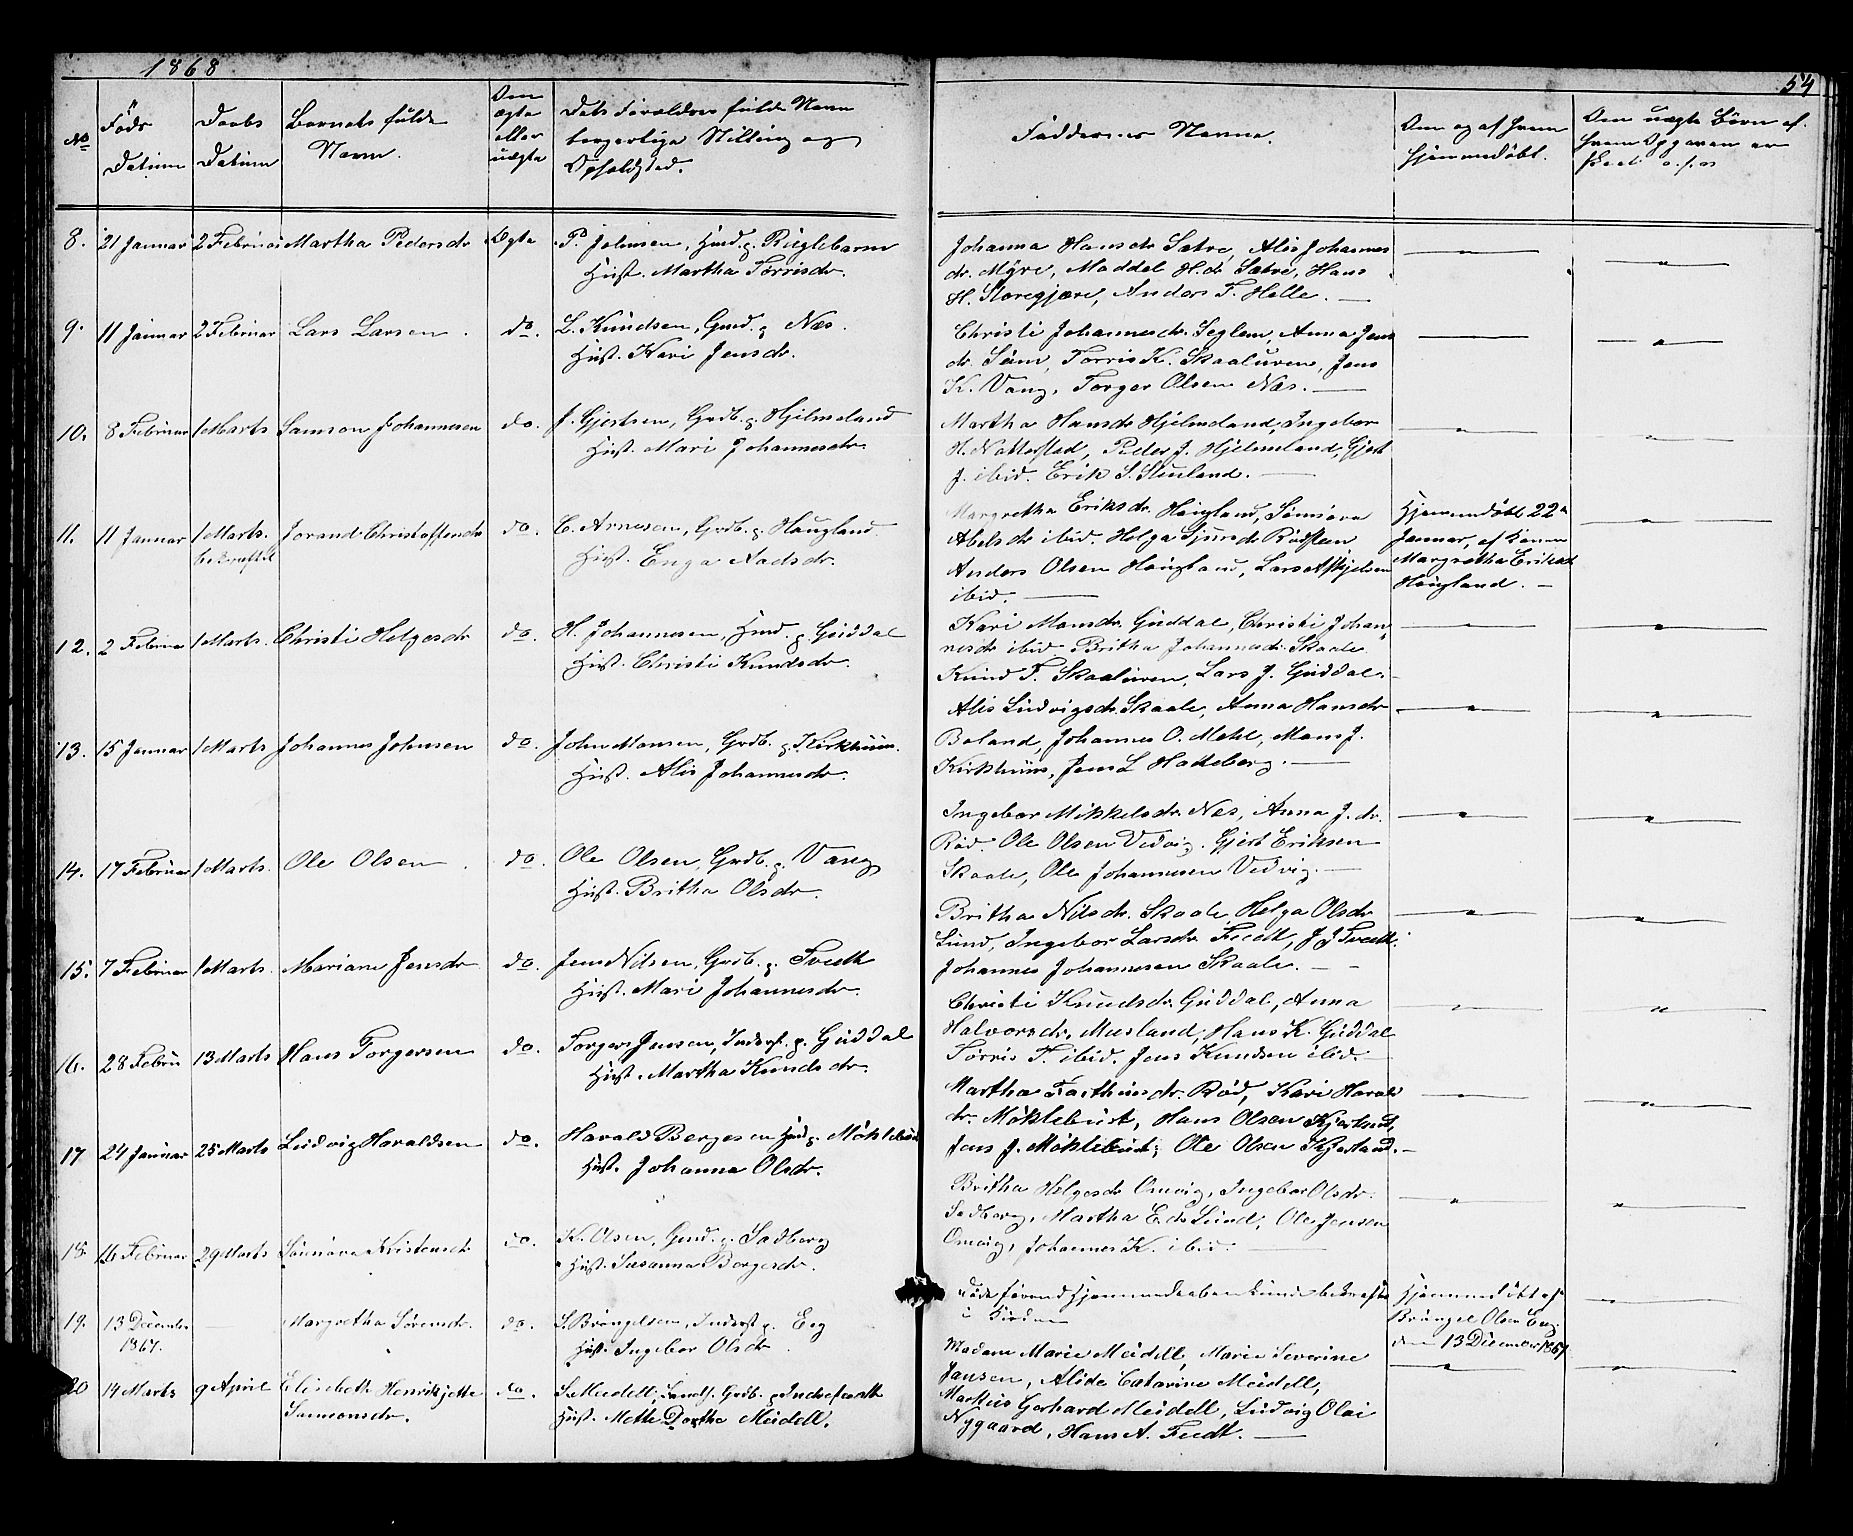 1868
54
No
Föds Datum
Daabs Datum
Barnets fulde Navn.
Om ægte eller uægte
Dets Forældres fulde Navn borgerlige Stilling og Opholdsted.
Faddernes Navne.
Om og af hvem hjemmedøbt.
Om uægte Börn af hvem Opgaven er
8. 21 Januar 2 Februar Martha Pedersdr Ægte P. Johnsen, Huusmd. p. Ruglebarm
Hust. Martha Torrisdr.
Johanna Hansdr Sætre, Alis Johannes
dr. Myre, Maddel H.dr Sætre, Hans
H. Storegjære, Anders T. Helle.
9. 11 Januar 2 Februar Lars Larsen do. L. Knudsen, Gmd. p. Næs.
Hust. Kari Jensdr.
Christi Johannesdr. Seglem, Anna Jens
dr. Sæm, Torris K. Skaaluren, Jens
K. Vang, Torger Olsen Næs.
10. 8 Februar 1 Marts Samson Johannesen do. J. Gjertsen, Grdb. p. Hjelmeland
Hust. Mari Johannesdr.
Martha Hansdr Hjelmeland, Ingebor
H. Nattestad, Peder J. Hjelmeland, Gjert
J. ibid. Erik S. Stueland.
11. 11 Januar 1 Marts. bekræftet Jorand Christoffersdr do. C. Arnesen, Grdb. p. Haugland
Hust. Enga Aadsdr.
Margretha Eriksdr. Haugland, Sønneva
Abelsdr ibid. Helga Sjursdr Rødsteen
Anders Olsen Haugland, Lars Askjelsen
ibid.
Hjemmedøbt 22de
Januar, af Konen
Margretha Eriksdr
Haugland.
12. 2 Februar 1 Marts. Christi Helgesdr do. H. Johannesen, Huusmd. p. Guddal
Hust. Christi Knudsdr.
Kari Monsdr. Guddal, Christi Johan
nesdr ibid Britha Johannesdr. Skaale
Knud T. Skaaluren, Lars J. Guddal.
13. 15 Januar 1 Marts Johannes Johnsen do. John Monsen, Grdb. p. Kirkhuus.
Hust. Alis Johannesdr.
Alis Ludvigsdr. Skaale, Anna Hansdr
Boland, Johannes O. Mehl, Mons J.
Kirkhuus, Jens L Hatteberg.
14. 17 Februar 1 Marts. Ole Olsen do. Ole Olsen, Grdb. p. Vang
Hust. Britha Olsdr.
Ingebor Mikkelsdr. Næs, Anna J. dr.
Rød. Ole Olsen Vedvig. Gjert Eriksen
Skaale, Ole Johannesen Vedvig.
15. 7 Februar 1 Marts. Mariane Jensdr do. Jens Nilsen, Grdb. p. Tvedt
Hust. Mari Johannesdr.
Britha Nilsdr. Skaale, Helga Olsdr
Lund, Ingebor Larsdr. Tvedt, J J Tvedt.
Johannes Johannesen Skaale.
16. 28 Febru 13 Marts Hans Torgersen do. Torgers Jensen, Inderst. p. Guddal
Hust. Martha Knudsdr.
Christi Knudsdr. Guddal, Anna
Halvorsdr. Musland, Hans K. Guddal
Torris T. ibid. Jens Knudsen ibid.
17 24 Januar 25 Marts Ludvig Haraldsen do. Harald Bergesen Huusmd p. Møklebust
Hust. Johanna Olsdr.
Martha Torthunsdr. Rød, Kari Harald
dr. Møklebust, Hans Olsen Kjerland,
Jens J. Møklebust, Ole Olsen Kjerland.
18 16 Februar 29 Marts Sønnøva Kristensdr do. K. Olsen, Gmd. p. Sadberg
Hust. Susanna Bergesdr.
Britha Helgesdr Omvig, Ingebor Olsdr.
Sadberg, Martha E.dr Lund, Ole Jensen
Omvig, Johannes K. ibid.
19. 13 December 1867. Margretha Sørensdr. do. S. Brøngelsen, Inderst p. Eeg
Hust. Ingebor Olsdr
Døde förend Hjemmedaaben kunde bekræftes
i Kirken
Hjemmedøbt af
Brøngel Olsen Eeg
den 13 December 1867
20 14 Marts 9 April Elisebeth Henrikjette Samsonsdr. do. S. Meidell, Grdb. p. Indretvedt
Hust. Mette Dorthe Meidell.
Madam Marie Meidell, Marie Severine
Jansen, Alida Catarine Meidell,
Markus Gerhard Meidell, Ludvig Olai
Nygaard, Hans A. Tvedt.